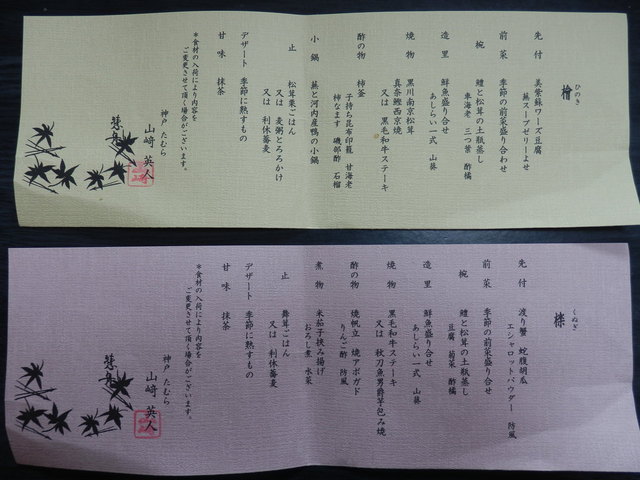 檜
ひのき
先付 美紫蘇ワーズ豆腐
蕪スープゼリーよせ
前菜 季節の前菜盛り合わせ
椀 鱧と松茸の土瓶蒸し
車海老 三つ葉 酢橘
造里 鮮魚盛り合せ
あしらい一式 山葵
焼物 黒川南京松茸
真奈鰹西京焼
又は 黒毛和牛ステーキ
酢の物 柿釜
子持ち昆布印籠 甘海老
柿なます 磯部酢 石榴
小鍋 蕪と河内産鴨の小鍋
止 松茸栗ごはん
又は 麦粥とろろかけ
又は 利休蕎麦
デザート 季節に熟すもの
甘味 抹茶
*食材の入荷により内容を
ご変更させて頂く場合がございます。
神戸 たむら
山﨑 英人
櫟
くぬぎ
先付 渡り蟹 蛇腹胡瓜
エシャロットパウダー 防風
前菜 季節の前菜盛り合せ
椀 鱧と松茸の土瓶蒸し
豆腐 菊菜 酢橘
造里 鮮魚盛り合せ
あしらい一式 山葵
焼物 黒毛和牛ステーキ
又は 秋刀魚男爵芋包み焼
酢の物 焼帆立 焼アボガド
りんご酢 防風
煮物 米茄子挟み揚げ
おろし煮 水菜
止 舞茸ごはん
又は 利休蕎麦
デザート 季節に熟すもの
甘味 抹茶
*食材の入荷により内容を
ご変更させて頂く場合がございます。
神戸 たむら
山﨑 英人